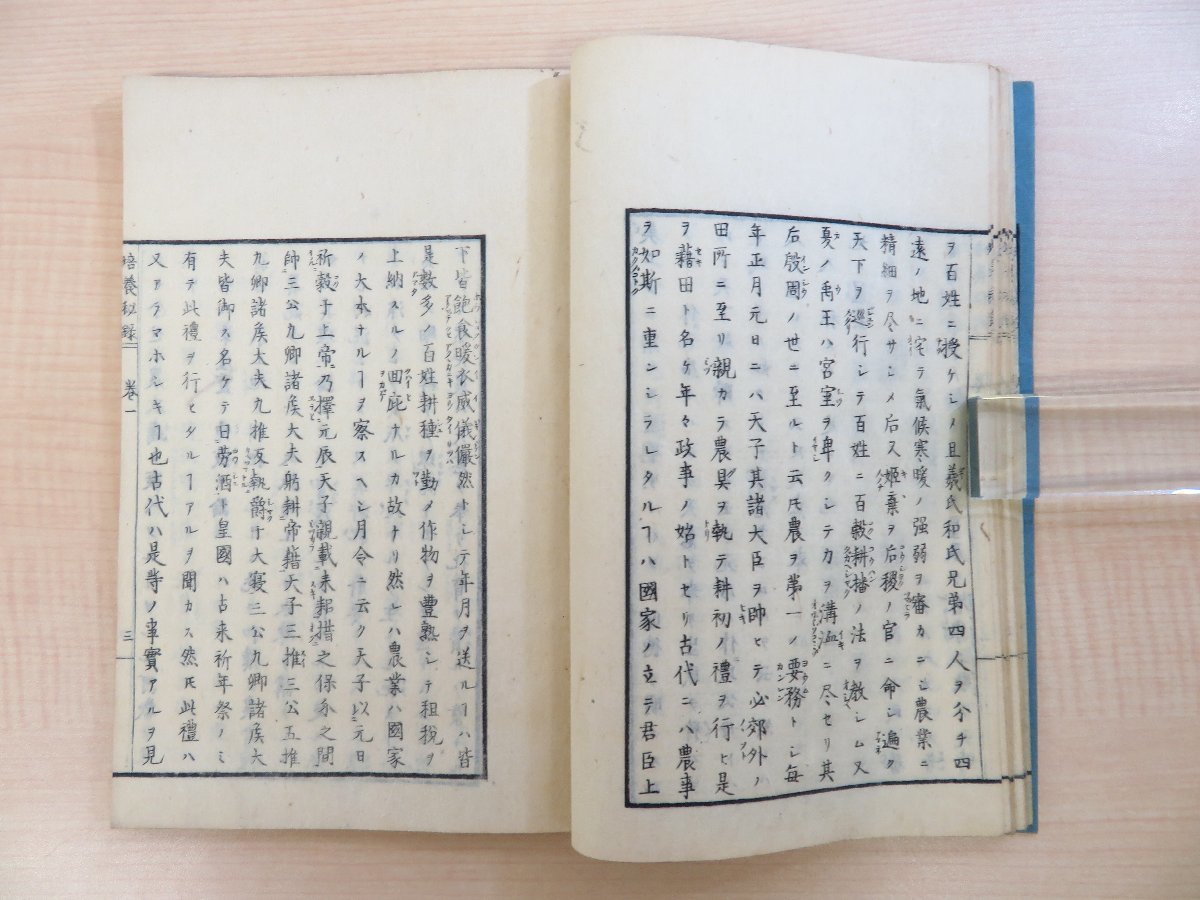 ヲ百姓ニ授ケシノ且羲氏和氏兄弟四人ヲ分チ四
遠ノ地ニ宅ラ氣候寒暖ノ强弱ヲ審カニシ農業ニ
精細ヲ尽サシメ后又姫棄ヲ后稷ノ官ニ命シ遍ク
天下ヲ巡行シテ百姓ニ百穀耕播ノ法ヲ教シム又
夏ノ禹王ハ宮室ヲ卑クシテ力ヲ溝洫ニ尽セリ其
后殷周ノ世ニ至ルト云𪜈農ヲ第一ノ要務トシ每
年正月元日ニハ天子其諸大臣ヲ帥ヒテ必郊外ノ
田所ニ至リ親カラ農具ヲ執テ耕初ノ禮ヲ行ヒ是
ヲ藉田ト名ケ年々政事ノ始トセリ古代ニハ農事
ヲ如斯ニ重ンシラレタルヿハ國家ノ立テ君臣上
下皆飽食暖衣威儀儼然トシテ年月ヲ送ルヿハ皆
是数多ノ百姓耕種ヲ勤メ作物ヲ豊熟シテ租税ヲ
上納スルノ回庇ナルカ故ナリ然レハ農業ハ國家
ノ大本ナルヿヲ察スヘシ月令ニ云ク天子以元日
祈穀于上帝乃擇元辰天子親載耒耜措之保介之間
帥三公九卿諸矦大夫躬耕帝籍天子三推三公五推
九卿諸矦大夫九推反執爵于大寝三公九卿諸矦大
夫皆御ス名ケテ曰労酒ト皇國ハ古来祈年祭ノミ
有テ此禮ヲ行ヒタルヿアルヲ聞カス然𪜈此禮ハ
又アラマホシキヿ也古代ハ是等ノ事實アルヲ見
培養秘録 卷一 三